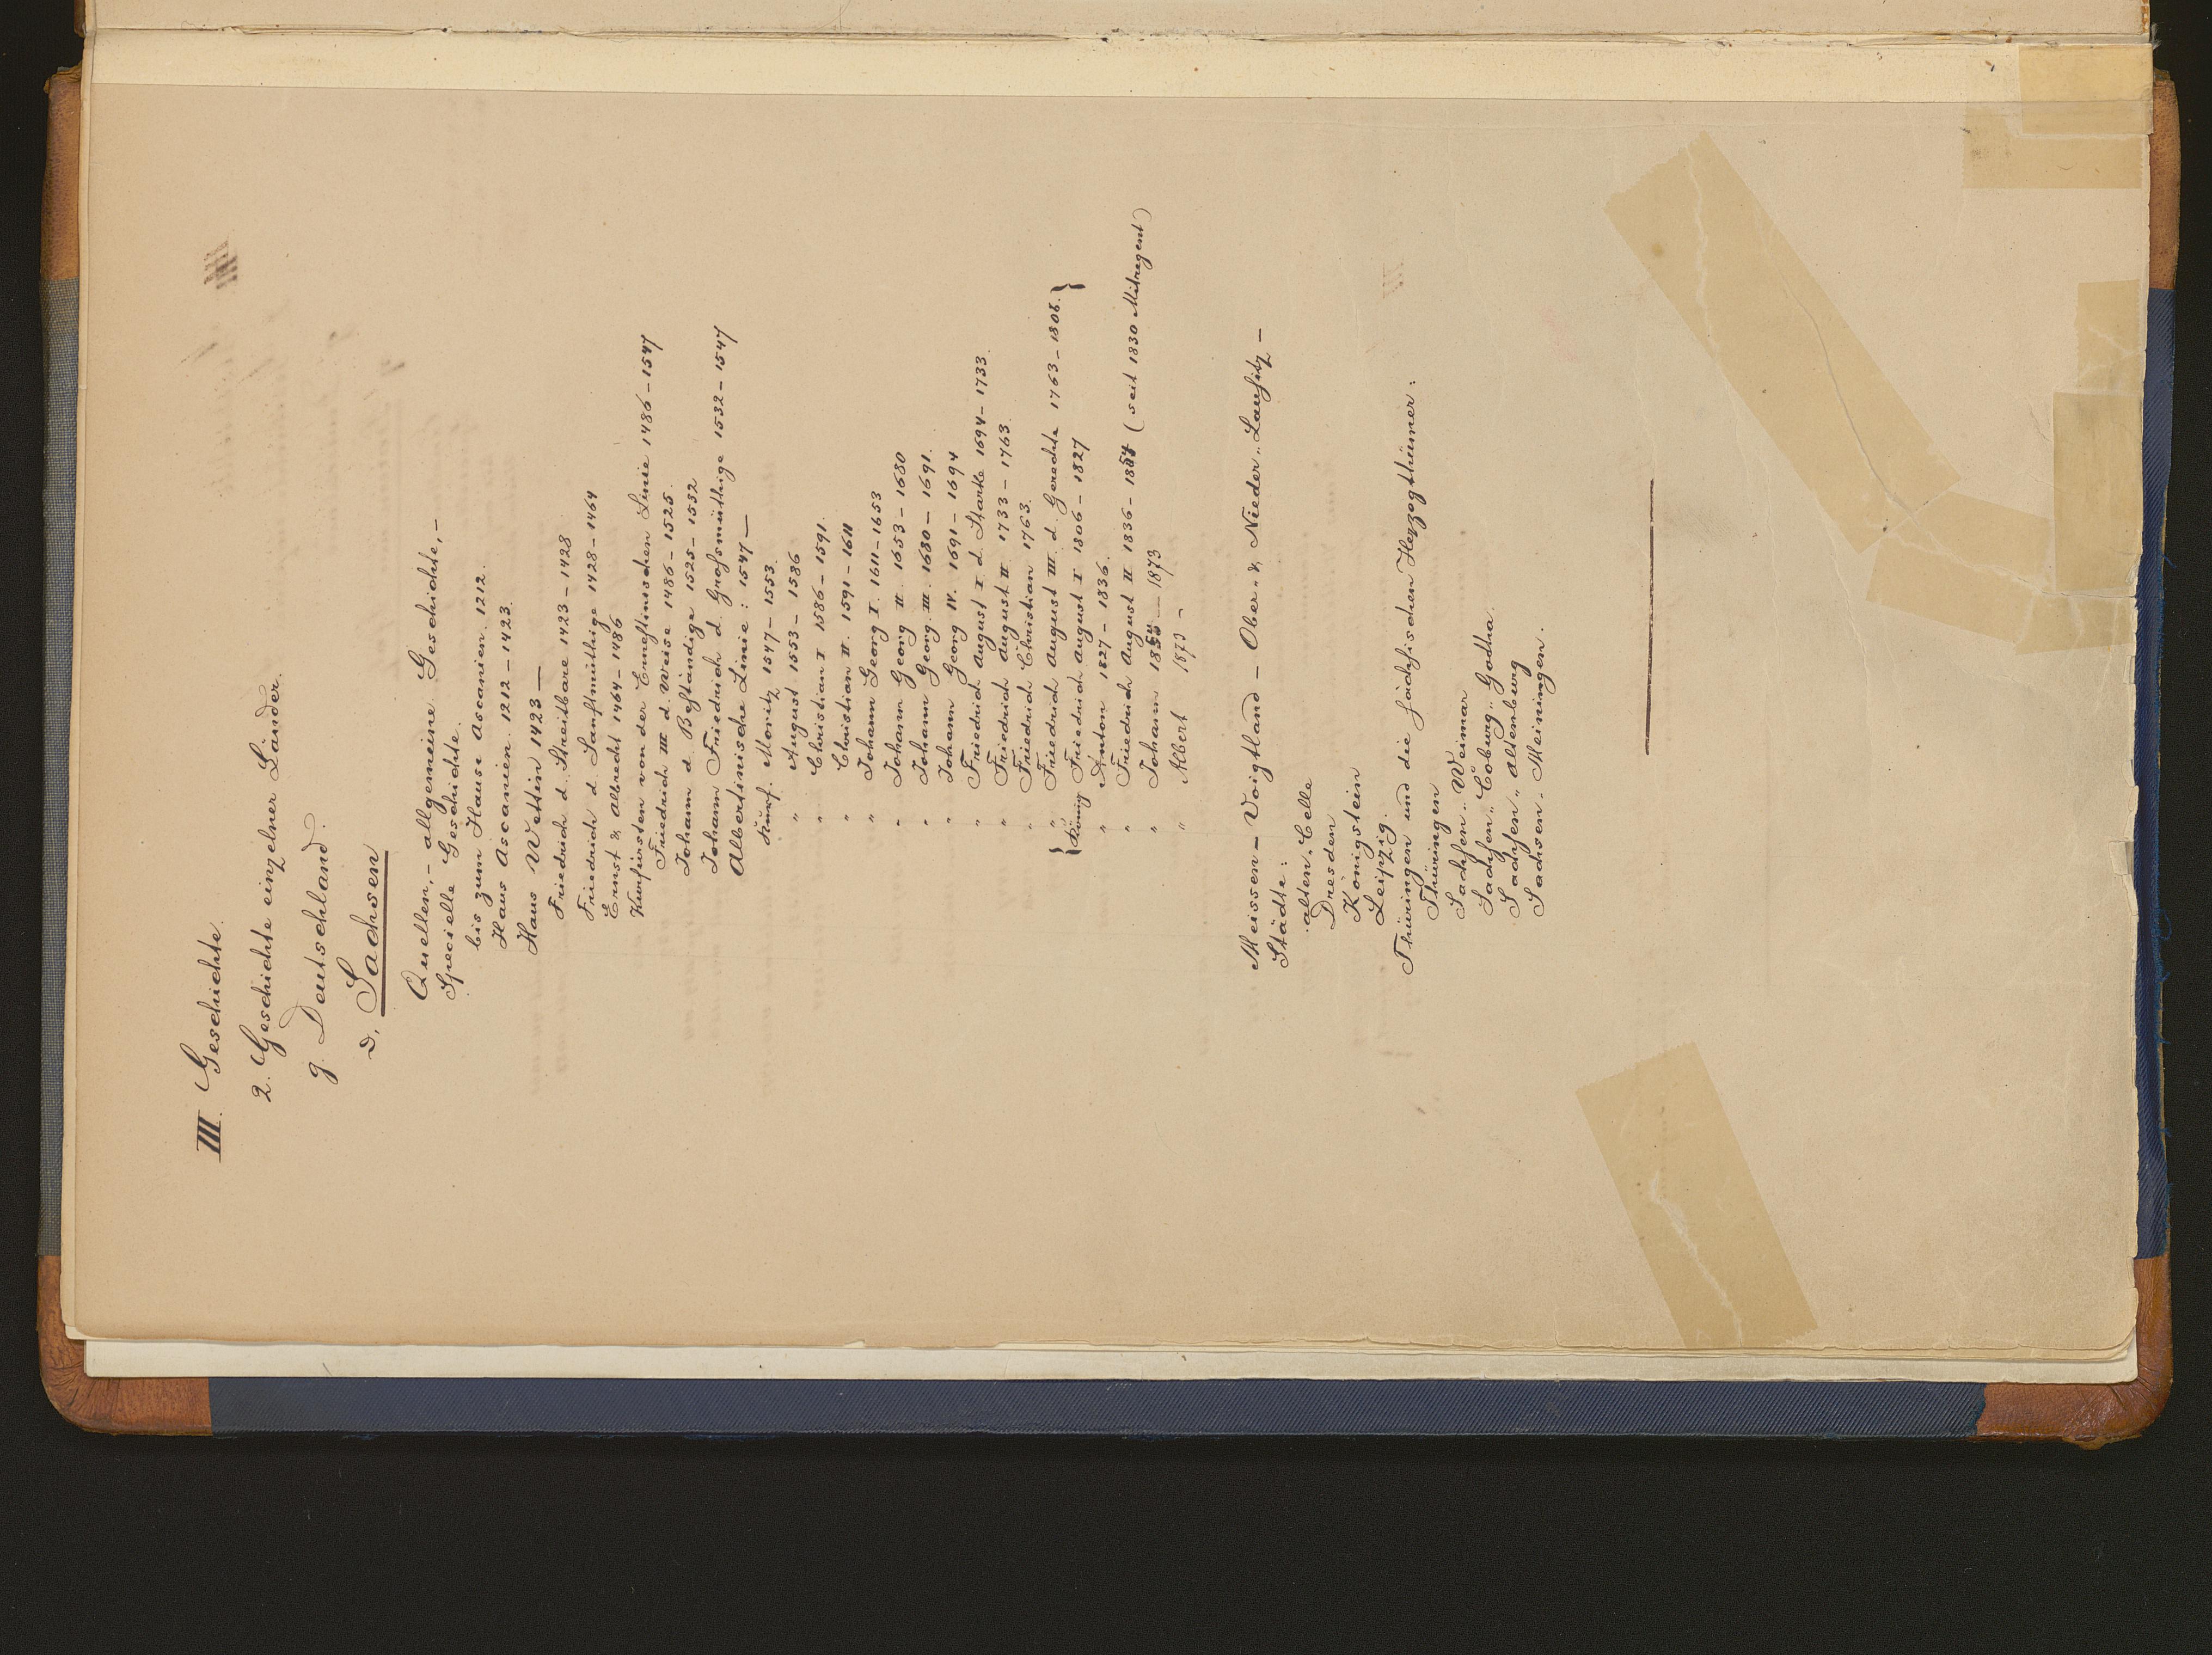 III. Geschichte.
2. Geschichte einzelner Länder.
g. Deutschland.
D, Sachsen
Quellen, – allgemeine Geschichte, –
Specielle Geschichte.
bis zum Hause Ascanien. 1212.
Haus Ascanien. 1212 – 1423.
Haus Wettin 1423 —
Friedrich d. Streitbare 1423 – 1428
Friedrich d. Sanftmüthige 1428 – 1464
Ernst & Albrecht 1464 – 1486
Kurfürsten von der Ernestinschen Linie 1486 – 1547
Friedrich III d. Weise 1486 – 1525.
Johann d. Beständige 1525 – 1532
Johann Friedrich d. Großmüthige 1532 – 1547
Albertinische Linie: 1547 —
Kurf. Moritz 1547 – 1553.
" August 1553 – 1586
" Christian I 1586 – 1591.
" Christian II. 1591 – 1611
" Johann Georg I. 1611 – 1653
" Johann Georg II. 1653 – 1680
" Johann Georg III. 1680 – 1691.
" Johann Georg IV. 1691 – 1694
" Friedrich August I d. Starke 1694 – 1733.
" Friedrich August II 1733 – 1763.
" Friedrich Christian 1763.
{ " Friedrich August III. d. Gerechte 1763 – 1806. }
König Friedrich August I 1806 – 1827
" Anton 1827 – 1836.
" Friedrich August II 1836 – 1854 (seit 1830 Mitregent)
" Johann 1854 — 1873
" Albert 1873 –
Meissen – Voigtland – Ober- & Nieder-Lausitz –
Städte:
alten-Celle
Dresden
Königstein
Leipzig.
Thüringen und die sächsischen Herzogthümer:
Thüringen
Sachsen-Weimar
Sachsen-Coburg-Gotha.
Sachsen-Altenburg
Sachsen-Meiningen.